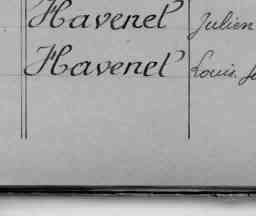 Havenel Julien
Havenel Louis